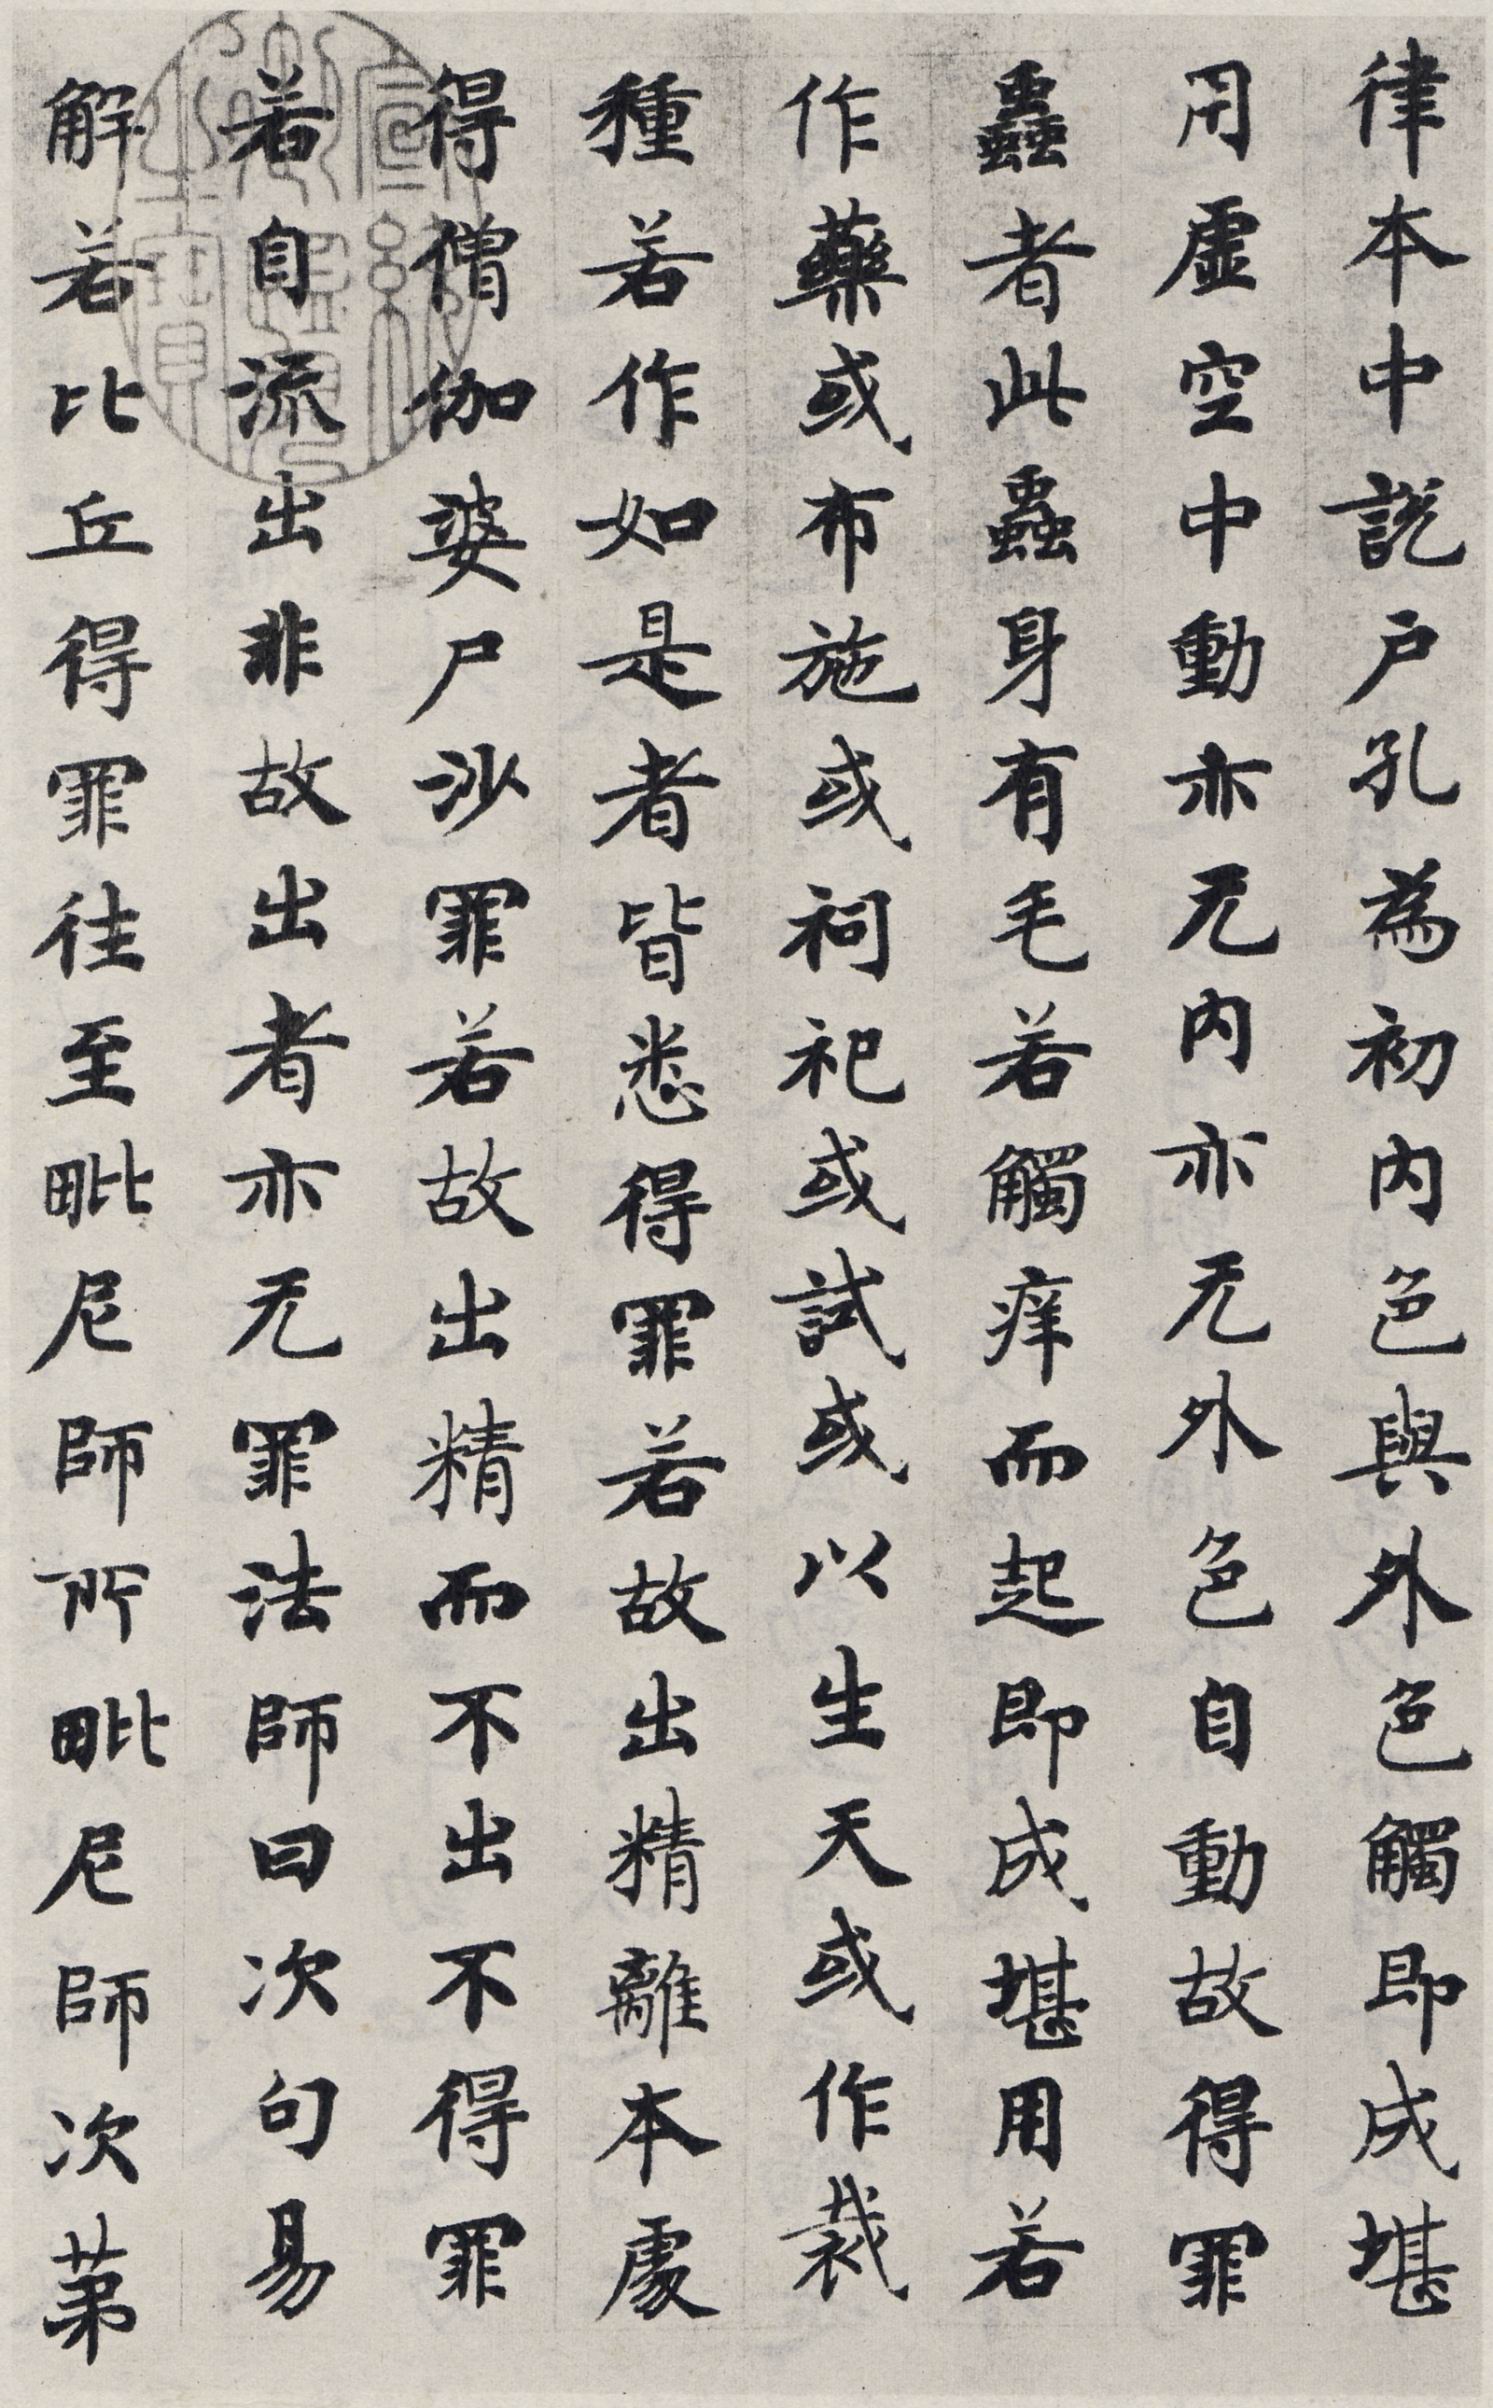 律本中説戶孔為初內色與外色觸即成堪
用虛空中動亦无內亦无外色自動故得罪
䘉者此䘉身有毛若觸痒而起即成堪用若
作藥或布施或祠祀或試或以生天或作裁
種若作如是者皆悉得罪若故出精離本處
得僧伽婆尸沙罪若故出精而不出不得罪
若自流出非故出者亦无罪法師曰次句易
解若比丘得罪往至毗尼師所毗尼師次苐